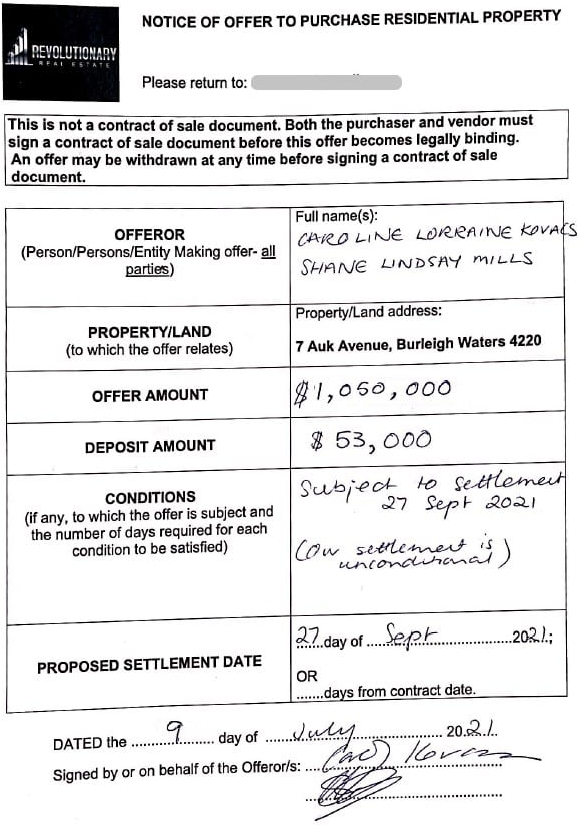 REVOLUTIONARY
REAL ESTATE
NOTICE OF OFFER TO PURCHASE RESIDENTIAL PROPERTY
Please return to:
This is not a contract of sale document. Both the purchaser and vendor must
sign a contract of sale document before this offer becomes legally binding.
An offer may be withdrawn at any time before signing a contract of sale
document.
OFFEROR
(Person/Persons/Entity Making offer- all
parties)
Full name(s):
CAROLINE LORRAINE KOVACS
SHANE LINDSAY MILLS
PROPERTY/LAND
(to which the offer relates)
Property/Land address:
7 Auk Avenue, Burleigh Waters 4220
OFFER AMOUNT
$1,050,000
DEPOSIT AMOUNT
$ 53,000
CONDITIONS
(if any, to which the offer is subject and
the number of days required for each
condition to be satisfied)
Subject to settlement
27 Sept 2021
(Our settlement is
unconditional)
PROPOSED SETTLEMENT DATE
27 day of Sept 2021;
OR
.......days from contract date.
DATED the 9 day of July 2021
Signed by or on behalf of the Offeror/s: Carol Kovacs